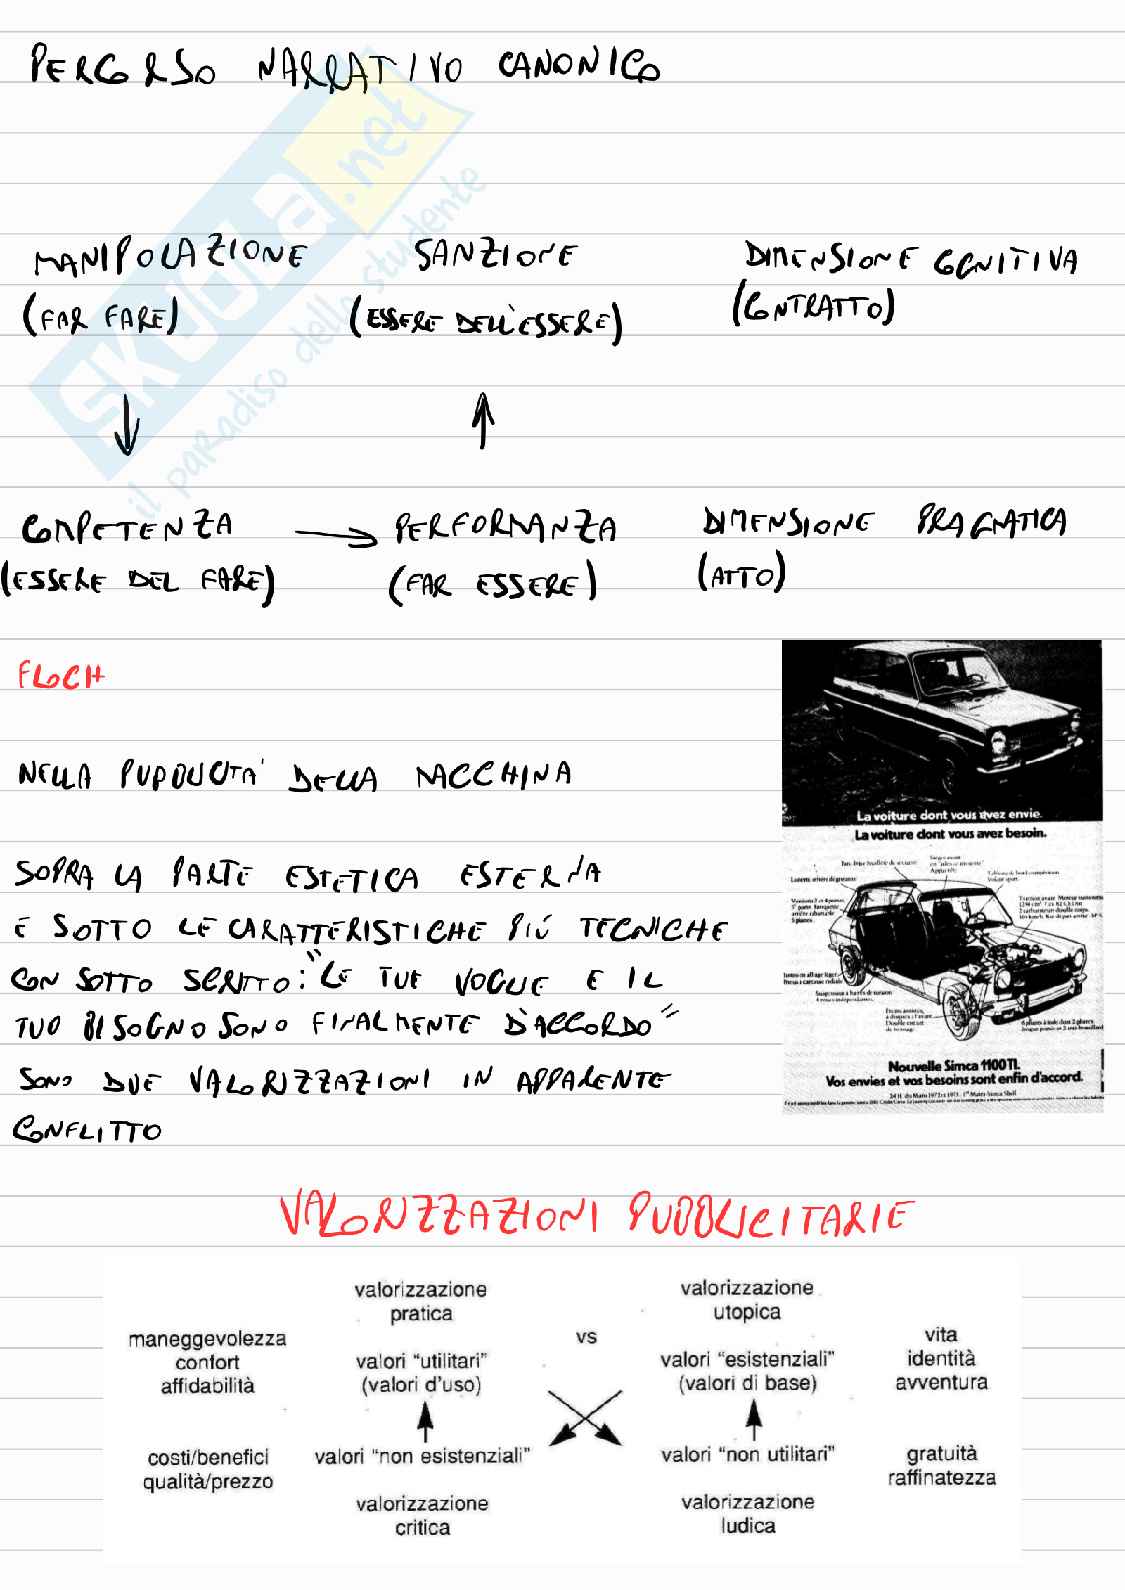 PERCORSO NARRATIVO CANONICO
SKUOLA.net
il paradiso dello studente
MANIPOLAZIONE SANZIONE DIMENSIONE COGNITIVA
(FAR FARE) (ESSERE DELL'ESSERE) (CONTRATTO)
COMPETENZA PERFORMANZA DIMENSIONE PRAGMATICA
(ESSERE DEL FARE) (FAR ESSERE) (ATTO)
FLOCH
NELLA PUBBLICITA' DELLA MACCHINA
SOPRA LA PARTE ESTETICA ESTERNA
E SOTTO LE CARATTERISTICHE PIÙ TECNICHE
CON SOTTO SCRITTO: "LE TUE VOGLIE E IL
TUO BISOGNO SONO FINALMENTE D'ACCORDO"
SONO DUE VALORIZZAZIONI IN APPARENTE
CONFLITTO
La voiture dont vous avez envie.
La voiture dont vous avez besoin.
Nouvelle Simca 1100 TI.
Vos envies et vos besoins sont enfin d'accord.
VALORIZZAZIONI PUBBLICITARIE
valorizzazione
pratica
valorizzazione
utopica
vs
maneggevolezza
confort
affidabilità
valori "utilitari"
(valori d'uso)
valori "esistenziali"
(valori di base)
vita
identità
avventura
costi/benefici
qualità/prezzo
valori "non esistenziali"
valori "non utilitari"
gratuità
raffinatezza
valorizzazione
critica
valorizzazione
ludica